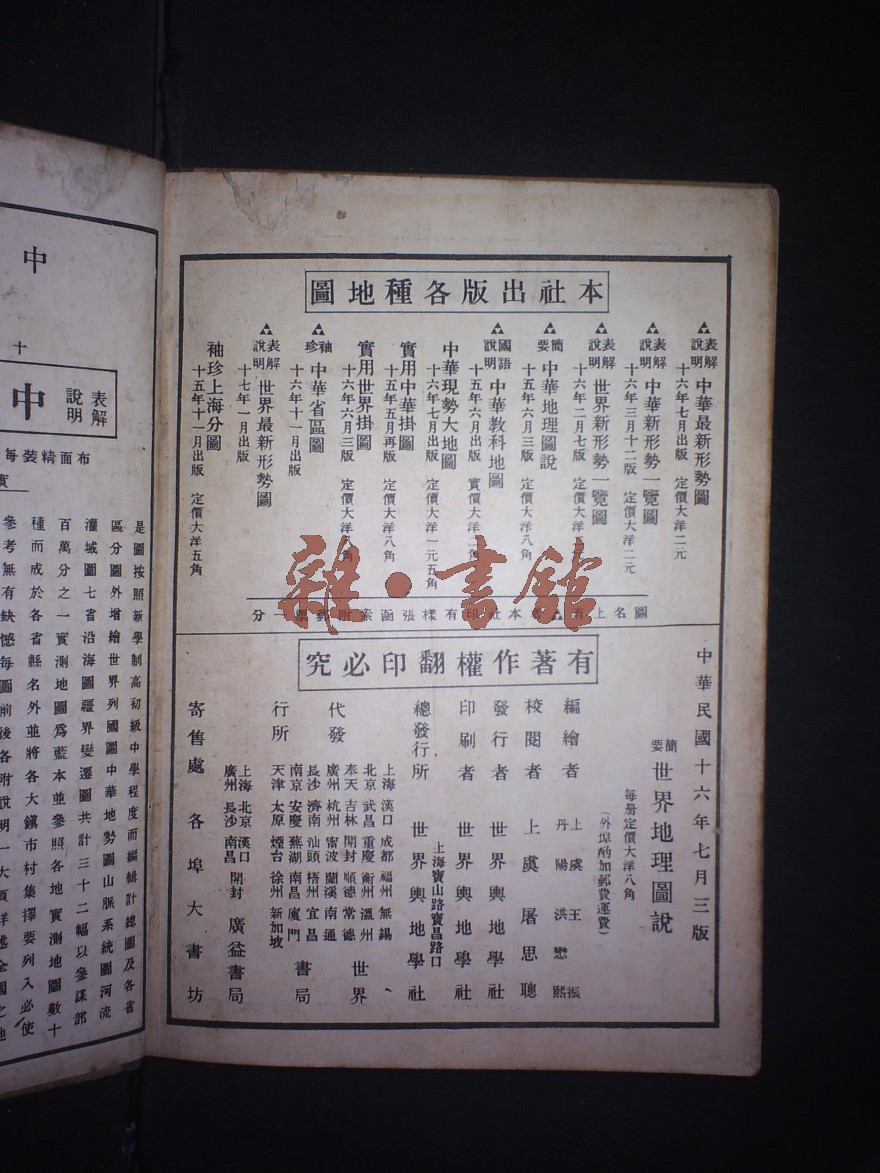 本社出版各種地圖
表解說明 中華最新形勢圖
十六年七月出版 定價大洋二元
表解說明 中華新形勢一覽圖
十六年三月十二版 定價大洋二元
表解說明 世界新形勢一覽圖
十六年二月七版 定價大洋二元
簡要 中華地理圖說
十五年六月三版 定價大洋八角
國語說明 中華教科地圖
十五年六月出版 實價大洋二角
中華現勢大地圖
十六年七月出版 定價大洋一元五角
實用中華掛圖
十五年五月再版 定價大洋八角
實用世界掛圖
十六年六月三版 定價大洋八角
袖珍 中華省區圖
十六年十一月出版
表解說明 世界最新形勢圖
十七年一月出版
袖珍上海分圖
十五年十一月出版 定價大洋五角
圖名上有 本社印有樣張函索附郵票一分
有著作權翻印必究
中華民國十六年七月三版
簡要 世界地理圖說
每册定價大洋八角
(外埠酌加郵費運費)
編繪者 上虞王振
丹陽洪懋熙
校閱者 上虞屠思聰
發行者 世界輿地學社
印刷者 世界輿地學社
上海寶山路寶昌路口
總發行所 世界輿地學社
代發行所
上海 漢口 成都 福州 無錫
北京 武昌 重慶 衡州 溫州
奉天 吉林 開封 順德 常德
廣州 杭州 甯波 蘭溪 南通
長沙 濟南 汕頭 梧州 宜昌
南京 安慶 蕪湖 南昌 廈門
天津 太原 煙台 徐州 新加坡
世界書局
上海 北京 漢口 開封
廣州 長沙 南昌
廣益書局
寄售處 各埠大書坊
中
十
表解說明 中
布面精裝每
是圖按照新學制高初級中學程度而編輯計總圖及各省
區分圖外增繪世界列國圖中華地勢圖山脈系統圖河流
灌域圖七省沿海圖疆界變遷圖共計三十二幅以參謀部
百萬分之一實測地圖爲藍本並參照各地實測地圖數十
種而成於各省縣名外並將各大鎮市村集擇要列入必使
參考無有缺憾每圖前後各附說明一大頁詳述全國之地
雜·書館